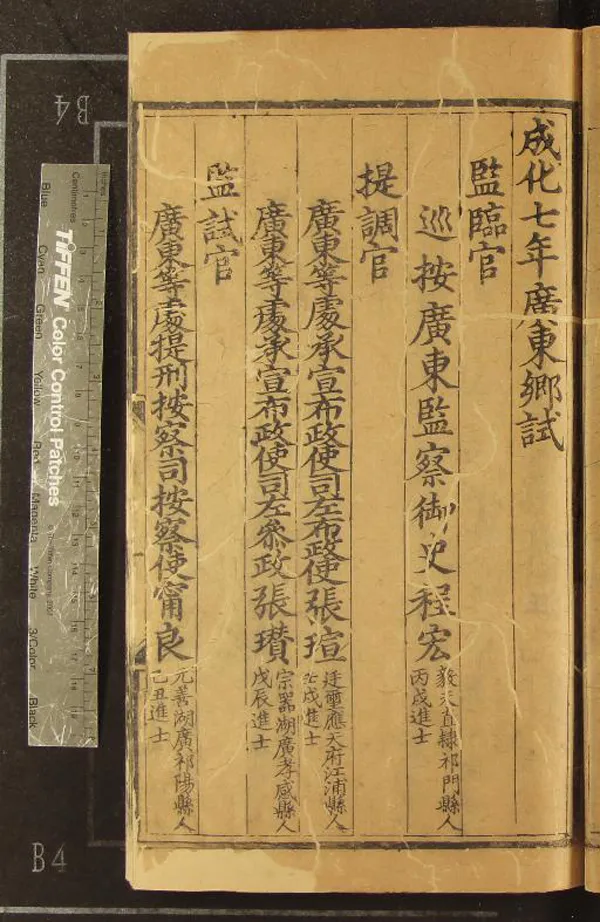 成化七年廣東鄉試
監臨官
巡按廣東監察御史程宏
毅夫直隸祁門縣人
丙戌進士
提調官
廣東等處承宣布政使司左布政使張瑄
廷璽應天府江浦縣人
壬戌進士
廣東等處承宣布政使司左參政張瓚
宗器湖廣孝感縣人
戊辰進士
監試官
廣東等處提刑按察司按察使甯良
元善湖廣祁陽縣人
乙丑進士
B4
Centimetres
Inches
Blue
Cyan
Green
Yellow
Red
Magenta
White
3/Color
Black
TIFFEN Color Control Patches
B4